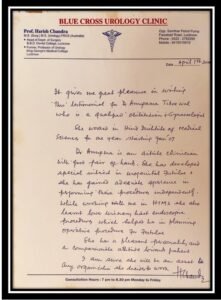 BLUE CROSS UROLOGY CLINIC
Prof. Harish Chandra
Date April 1st
It gives me great pleasure in writing
this testimonial for Dr Anupama
who is a qualified Obstetrician & Gynaecologist
She worked in Hind Institute of Medical
Science for an year starting
Dr Anupama is an astute clinician
with good pair of hands. She has developed
special interest in urogenital Fistulas &
she has gained adequate experience
performing these procedures independently.
While working with me in HIMS she also
learnt lower urinary tract endoscopic
procedures which helped her in planning
operative procedure for fistulas
She has a pleasant personality and
a compassionate attitude toward patients
I am sure she will be an asset to
any organisation she decides to work
Consultation Hours : 7 pm to 8.30 pm Monday to Friday